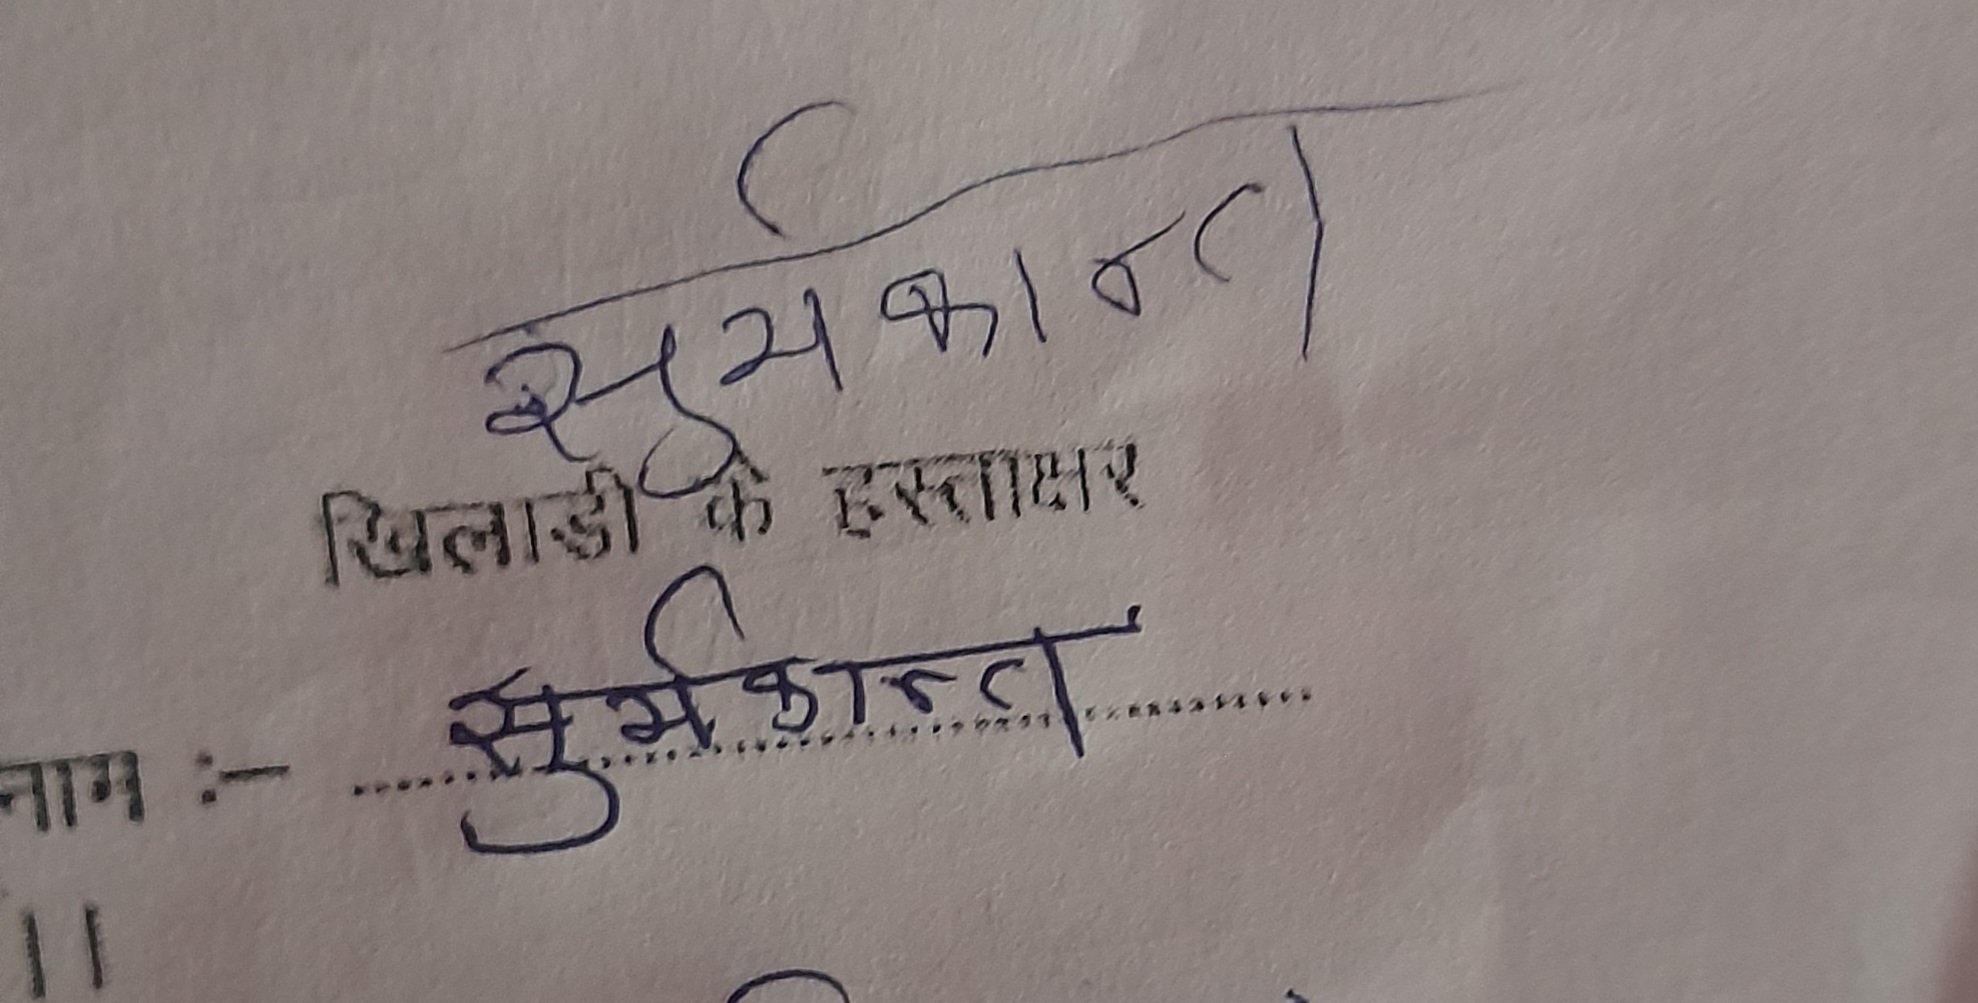 सुर्यकान्त
खिलाडी के हस्ताक्षर
नाम :- सुर्यकान्त
।।